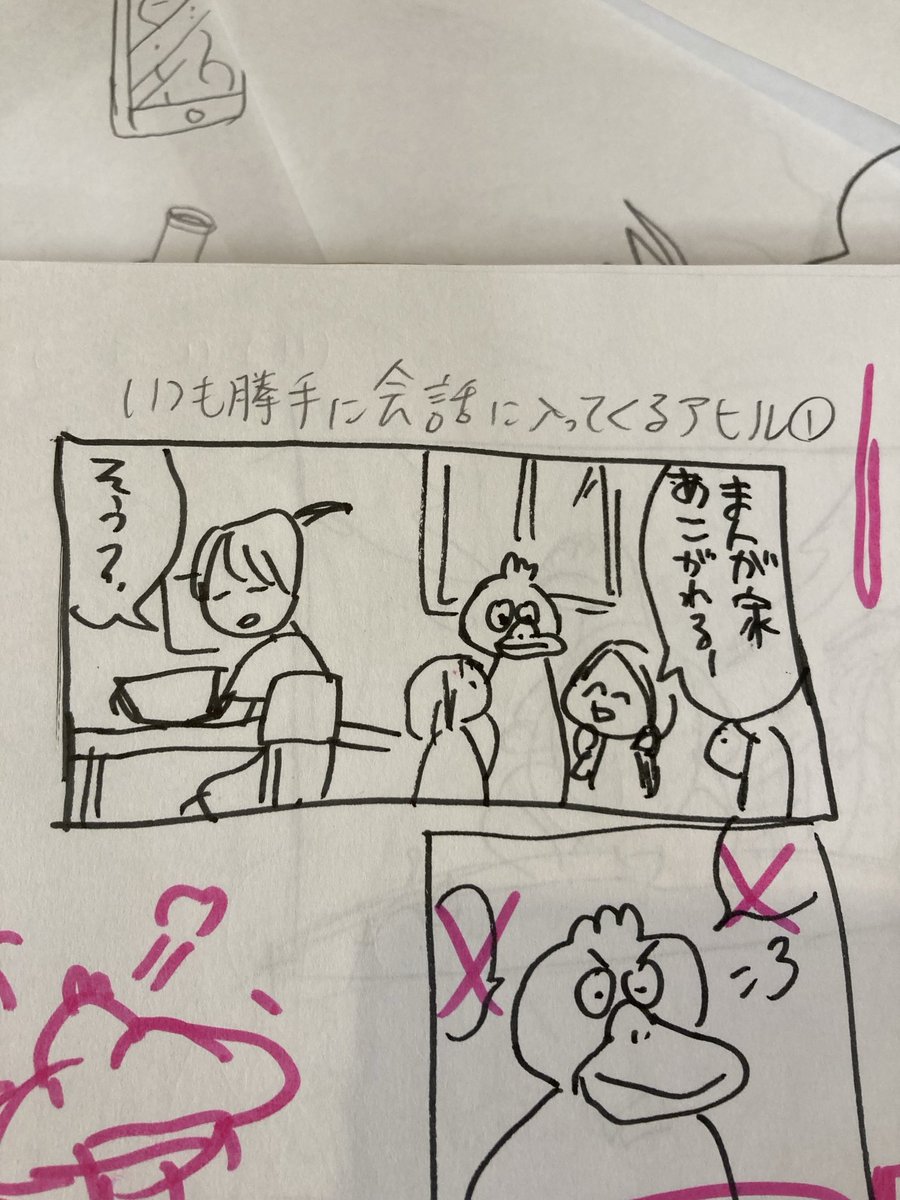 いつも勝手に会話に入ってくるアヒル①
まんが家
あこがれるー
そう?